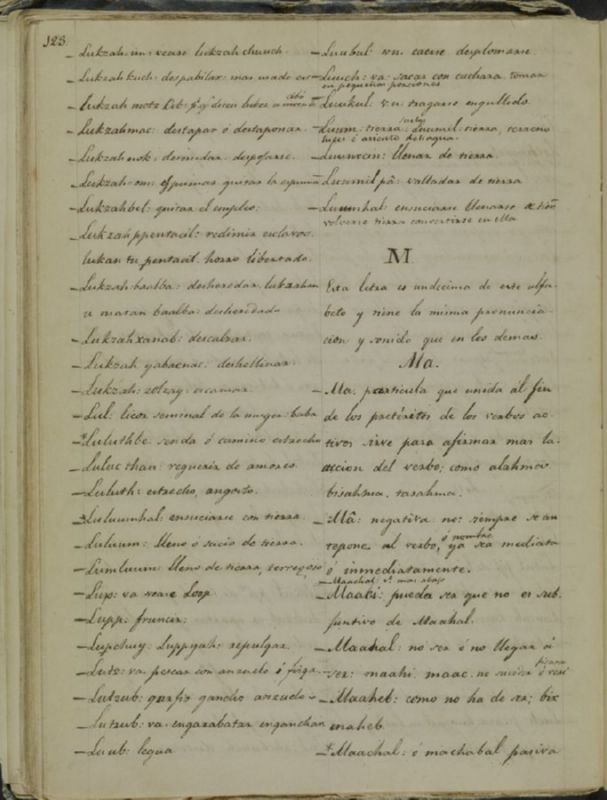 123.
- Lukzah-un: vease lukzah chuuch.
- Lukzah kuch: despabilar: mas usado es
- Lukzah motz kib: p.ª q.e dicen haber
- Lukzahmac: destapar ó destaponar.
- Lukzah nok: desnudar. despojarse.
- Lukzah-om: espumar quitar la espuma
- Lukzahbel: quitar el empleo:
- Lukzah ppentacil: redimir esclavos.
lukan tu pentacil: horro libertado.
- Lukzah-baalba: desheredar. lukzahan
u matan baalba: desheredado
- Lukzahxanab: descalzar.
- Lukzah yabacnac: deshollinar.
- Lukzah: zolzay: escamar.
- Lul: licor seminal de la muger: baba
- Luluthbe: senda ó camino estrecho
- Lulucthan: requerir de amores.
- Luluth: estrecho, angosto.
- Luluumhal: ensuciarse con tierra.
- Luluum: lleno ó sucio de tierra.
- Lumluum: lleno de tierra, terregoso
- Lup: va vease Loop.
- Lupp: fruncir.
- Lupchuy: Luppyah: repulgar.
- Lutz: va. pescar con anzuelo ó fisga.
- Lutzub: garfio gancho anzuelo.
- Lutzub: va. engarabatar enganchar
- Luub: legua
- Luubul: vn. caerse desplomarse.
- Luuch: va: sacar con cuchara. tomar
en pequeñas porciones
- Luukul: v.n. tragarse engullido.
- Luum: tierra: suelo: Luumil: tierra, terreno
lugar ó asiento
- Luumcin: llenar de tierra.
- Luumil pâ: valladar de tierra
- Luumhal: ensuciarse llenarse de tierra
volverse tierra convertirse en ella
M
Esta letra es undecima de este alfa-
beto y tiene la misma pronuncia-
cion y sonido que en los demas.
Ma.
- Ma. particula que unida al fin
de los pretéritos de los verbos ac-
tivos sirve para afirmar mas la
accion del verbo; como alahma
bisahma. tazahma.
- Mâ: negativa no: siempre se an-
tepone al verbo, ó nombre ya sea mediata
ó inmediatamente.
- Maachal: v. mas abajo
- Maaci: pueda ser que no es sub-
juntivo de Maahal.
- Maahal: no ser ó no llegar á
ser: maahi: maac. no suceda
- Maaheb: como no ha de ser; bix
maheb.
- Maachal: ó machabal: pasiva